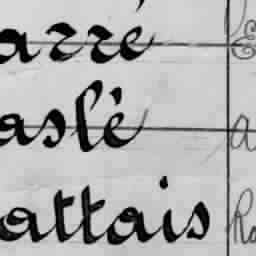 arré
aslé
attais